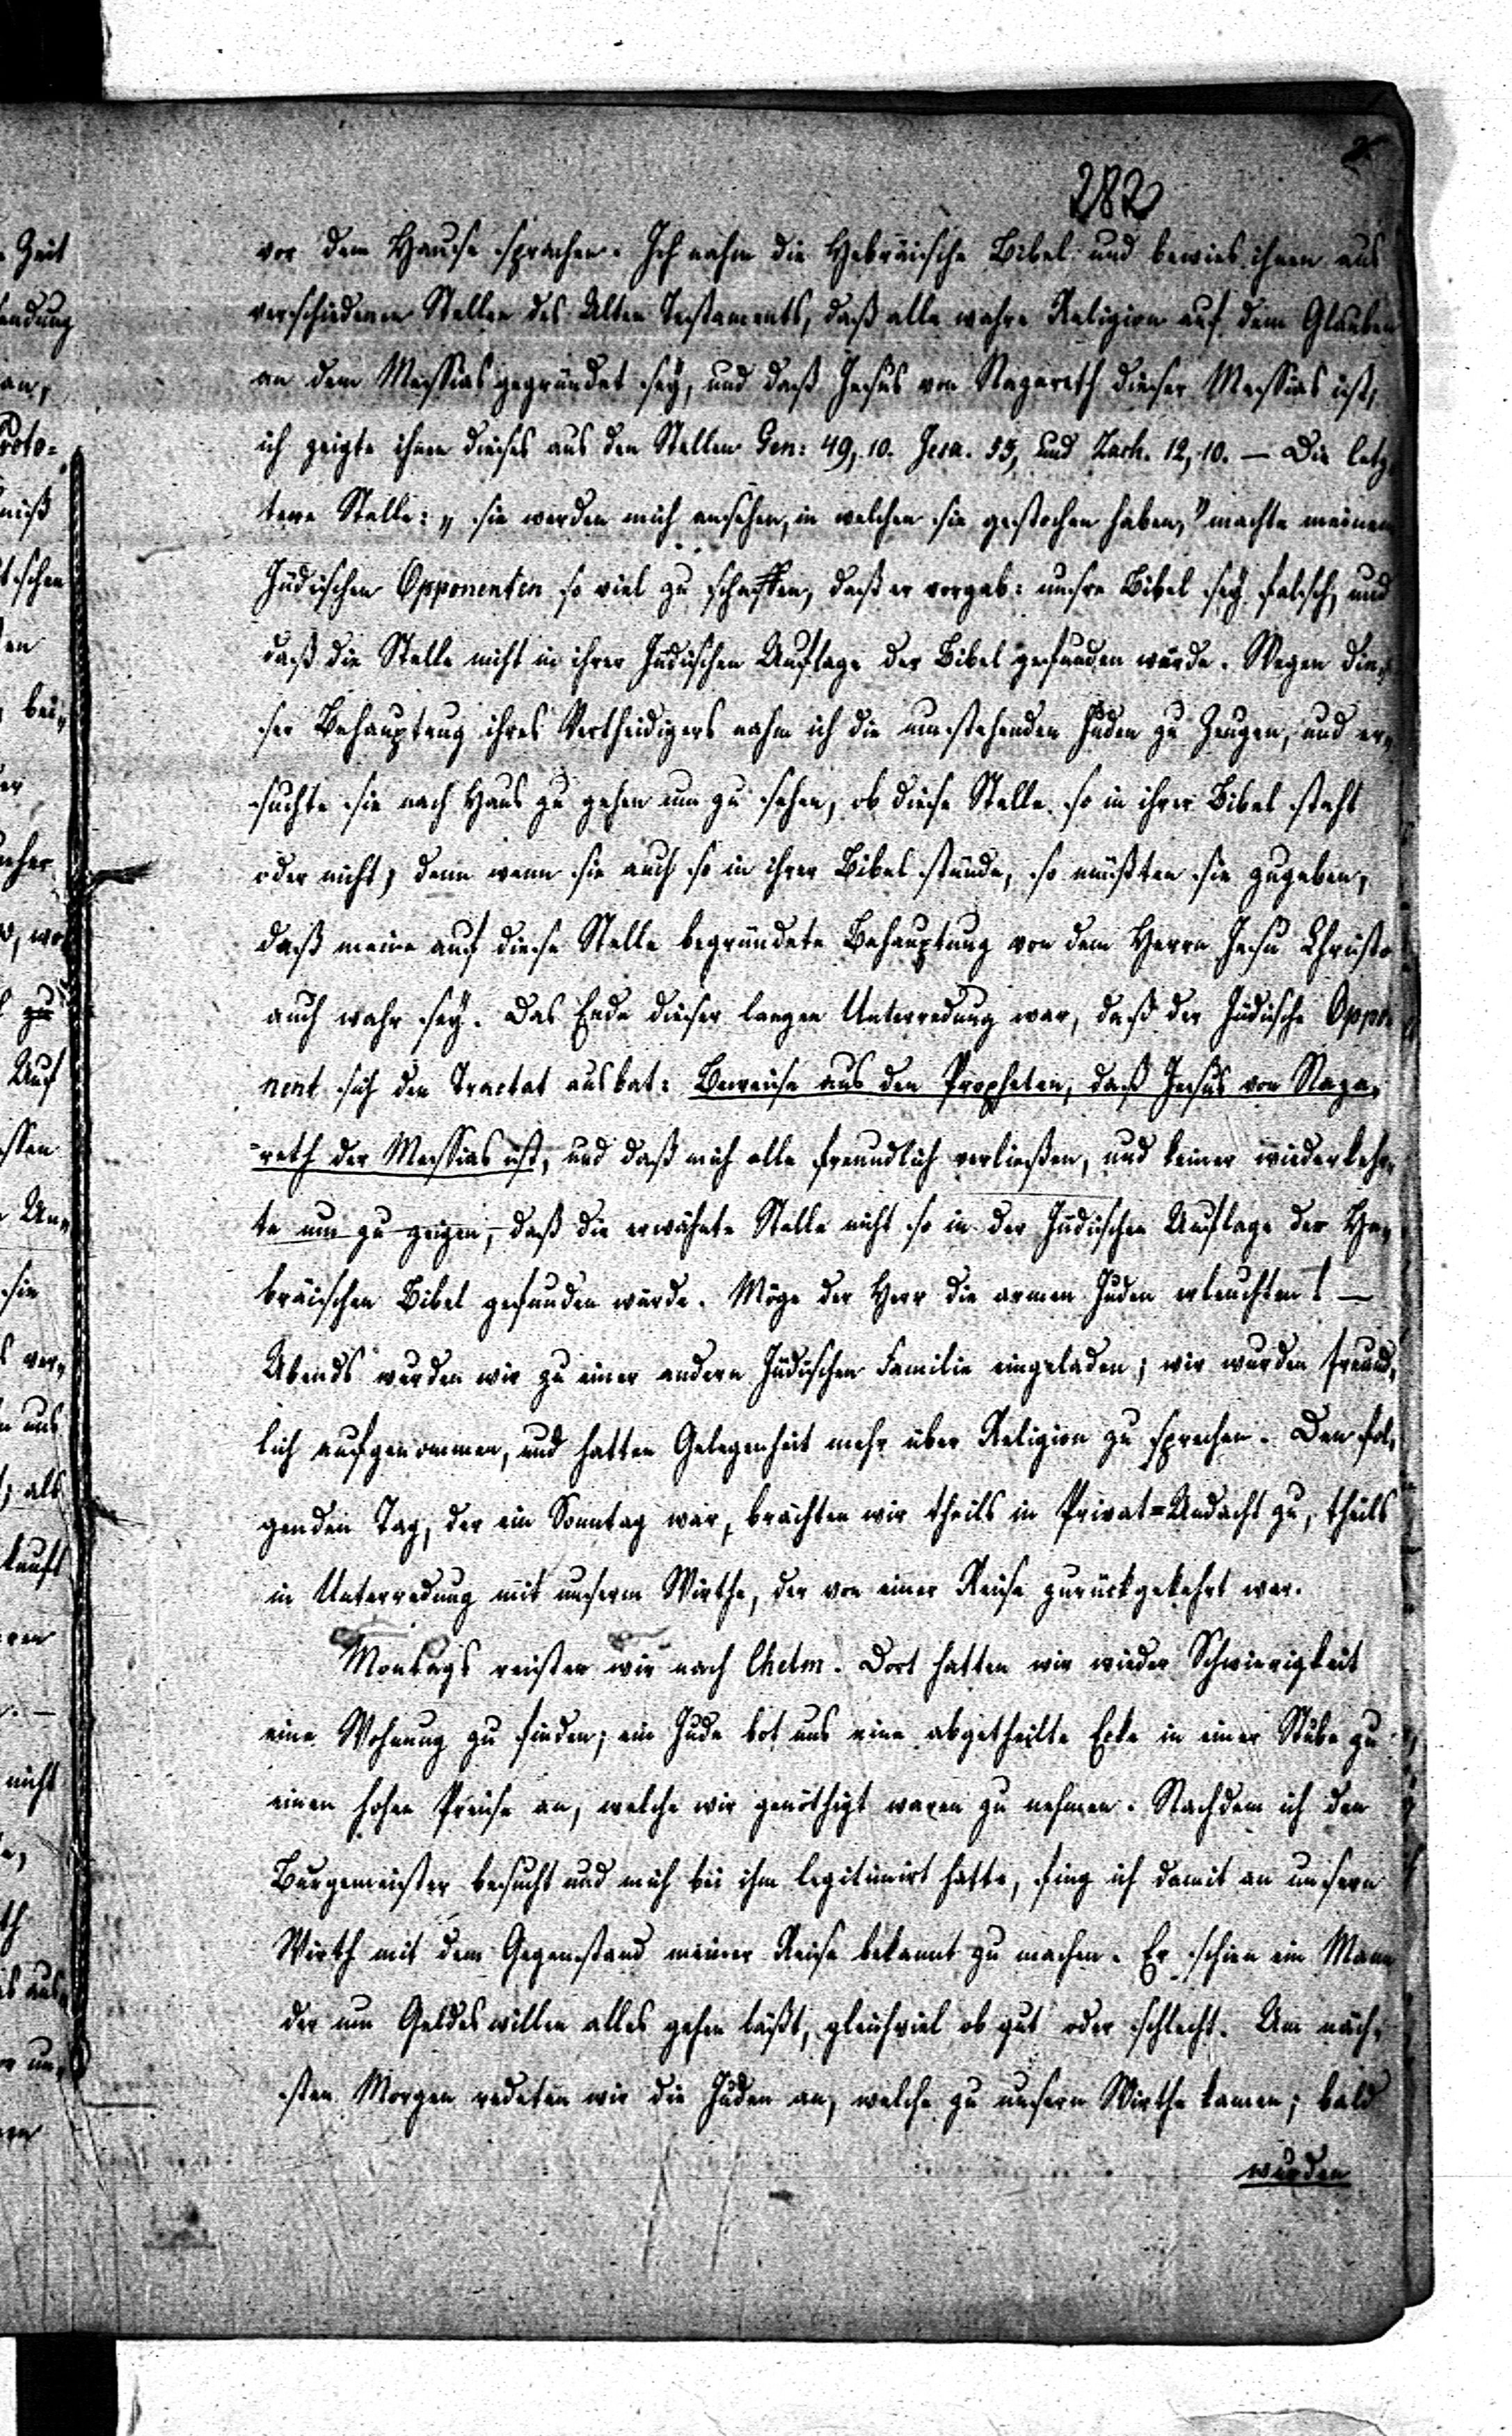 282
vor dem Hause sprachen. Ich nahm die Hebräische Bibel und bewies ihnen aus
verschiedenen Stellen des Alten Testaments, daß alle wahre Religion auf dem Glauben
an dem Messias gegründet sey, und daß Jesus von Nazareth dieser Messias ist,
ich zeigte ihnen dieses aus den Stellen Gen: 49, 10. Jesa. 53, und Zach. 12, 10. — Die letz„
tere Stelle: „sie werden mich ansehen, in welchen sie gestochen haben," machte meinem
Jüdischen Opponenten so viel zu schaffen, daß er vorgab: unsre Bibel sey falsch, und
daß die Stelle nicht in ihrer Jüdischen Auflage der Bibel gefunden würde. Wegen die„
ser Behauptung ihres Vertheidigers nahm ich die umstehenden Juden zu Zeugen, und er„
suchte sie nach Haus zu gehen um zu sehen, ob diese Stelle so in ihrer Bibel steht
oder nicht, denn wenn sie auch so in ihrer Bibel stünde, so müßten sie zugeben,
daß meine auf diese Stelle begründete Behauptung von dem Herrn Jesu Christo
auch wahr sey. Das Ende dieser langen Unterredung war, daß der Jüdische Oppo„
nent sich den Tractat ausbat: Beweise aus den Propheten, daß Jesus von Naza„
=reth der Messias ist, und daß mich alle freundlich verließen, und keiner wiederkehr„
te um zu zeigen, daß die erwähnte Stelle nicht so in der Jüdischen Auflage der He„
bräischen Bibel gefunden würde. Möge der Herr die armen Juden erleuchten! —
Abends wurden wir zu einer andern Jüdischen Familie eingeladen; wir wurden freund„
lich aufgenommen, und hatten Gelegenheit mehr über Religion zu sprechen. Den fol„
genden Tag, der ein Sonntag war, brachten wir theils in Privat=Andacht zu, theils
in Unterredung mit unserm Wirthe, der von einer Reise zurückgekehrt war.
Montags reisten wir nach Chelm. Dort hatten wir wieder Schwierigkeit
eine Wohnung zu finden; ein Jude bot uns eine abgetheilte Ecke in einer Stube zu
einen hohen Preise an, welche wir genöthigt waren zu nehmen. Nachdem ich den
Burgemeister besucht und mich bei ihm legitimirt hatte, fing ich damit an unsern
Wirth mit dem Gegenstand meiner Reise bekannt zu machen. Er schien ein Mann
der um Geldeswillen alles gehen läßt, gleichviel ob gut oder schlecht. Am näch„
sten Morgen redeten wir die Juden an, welche zu unserm Wirthe kamen; bald
wurden